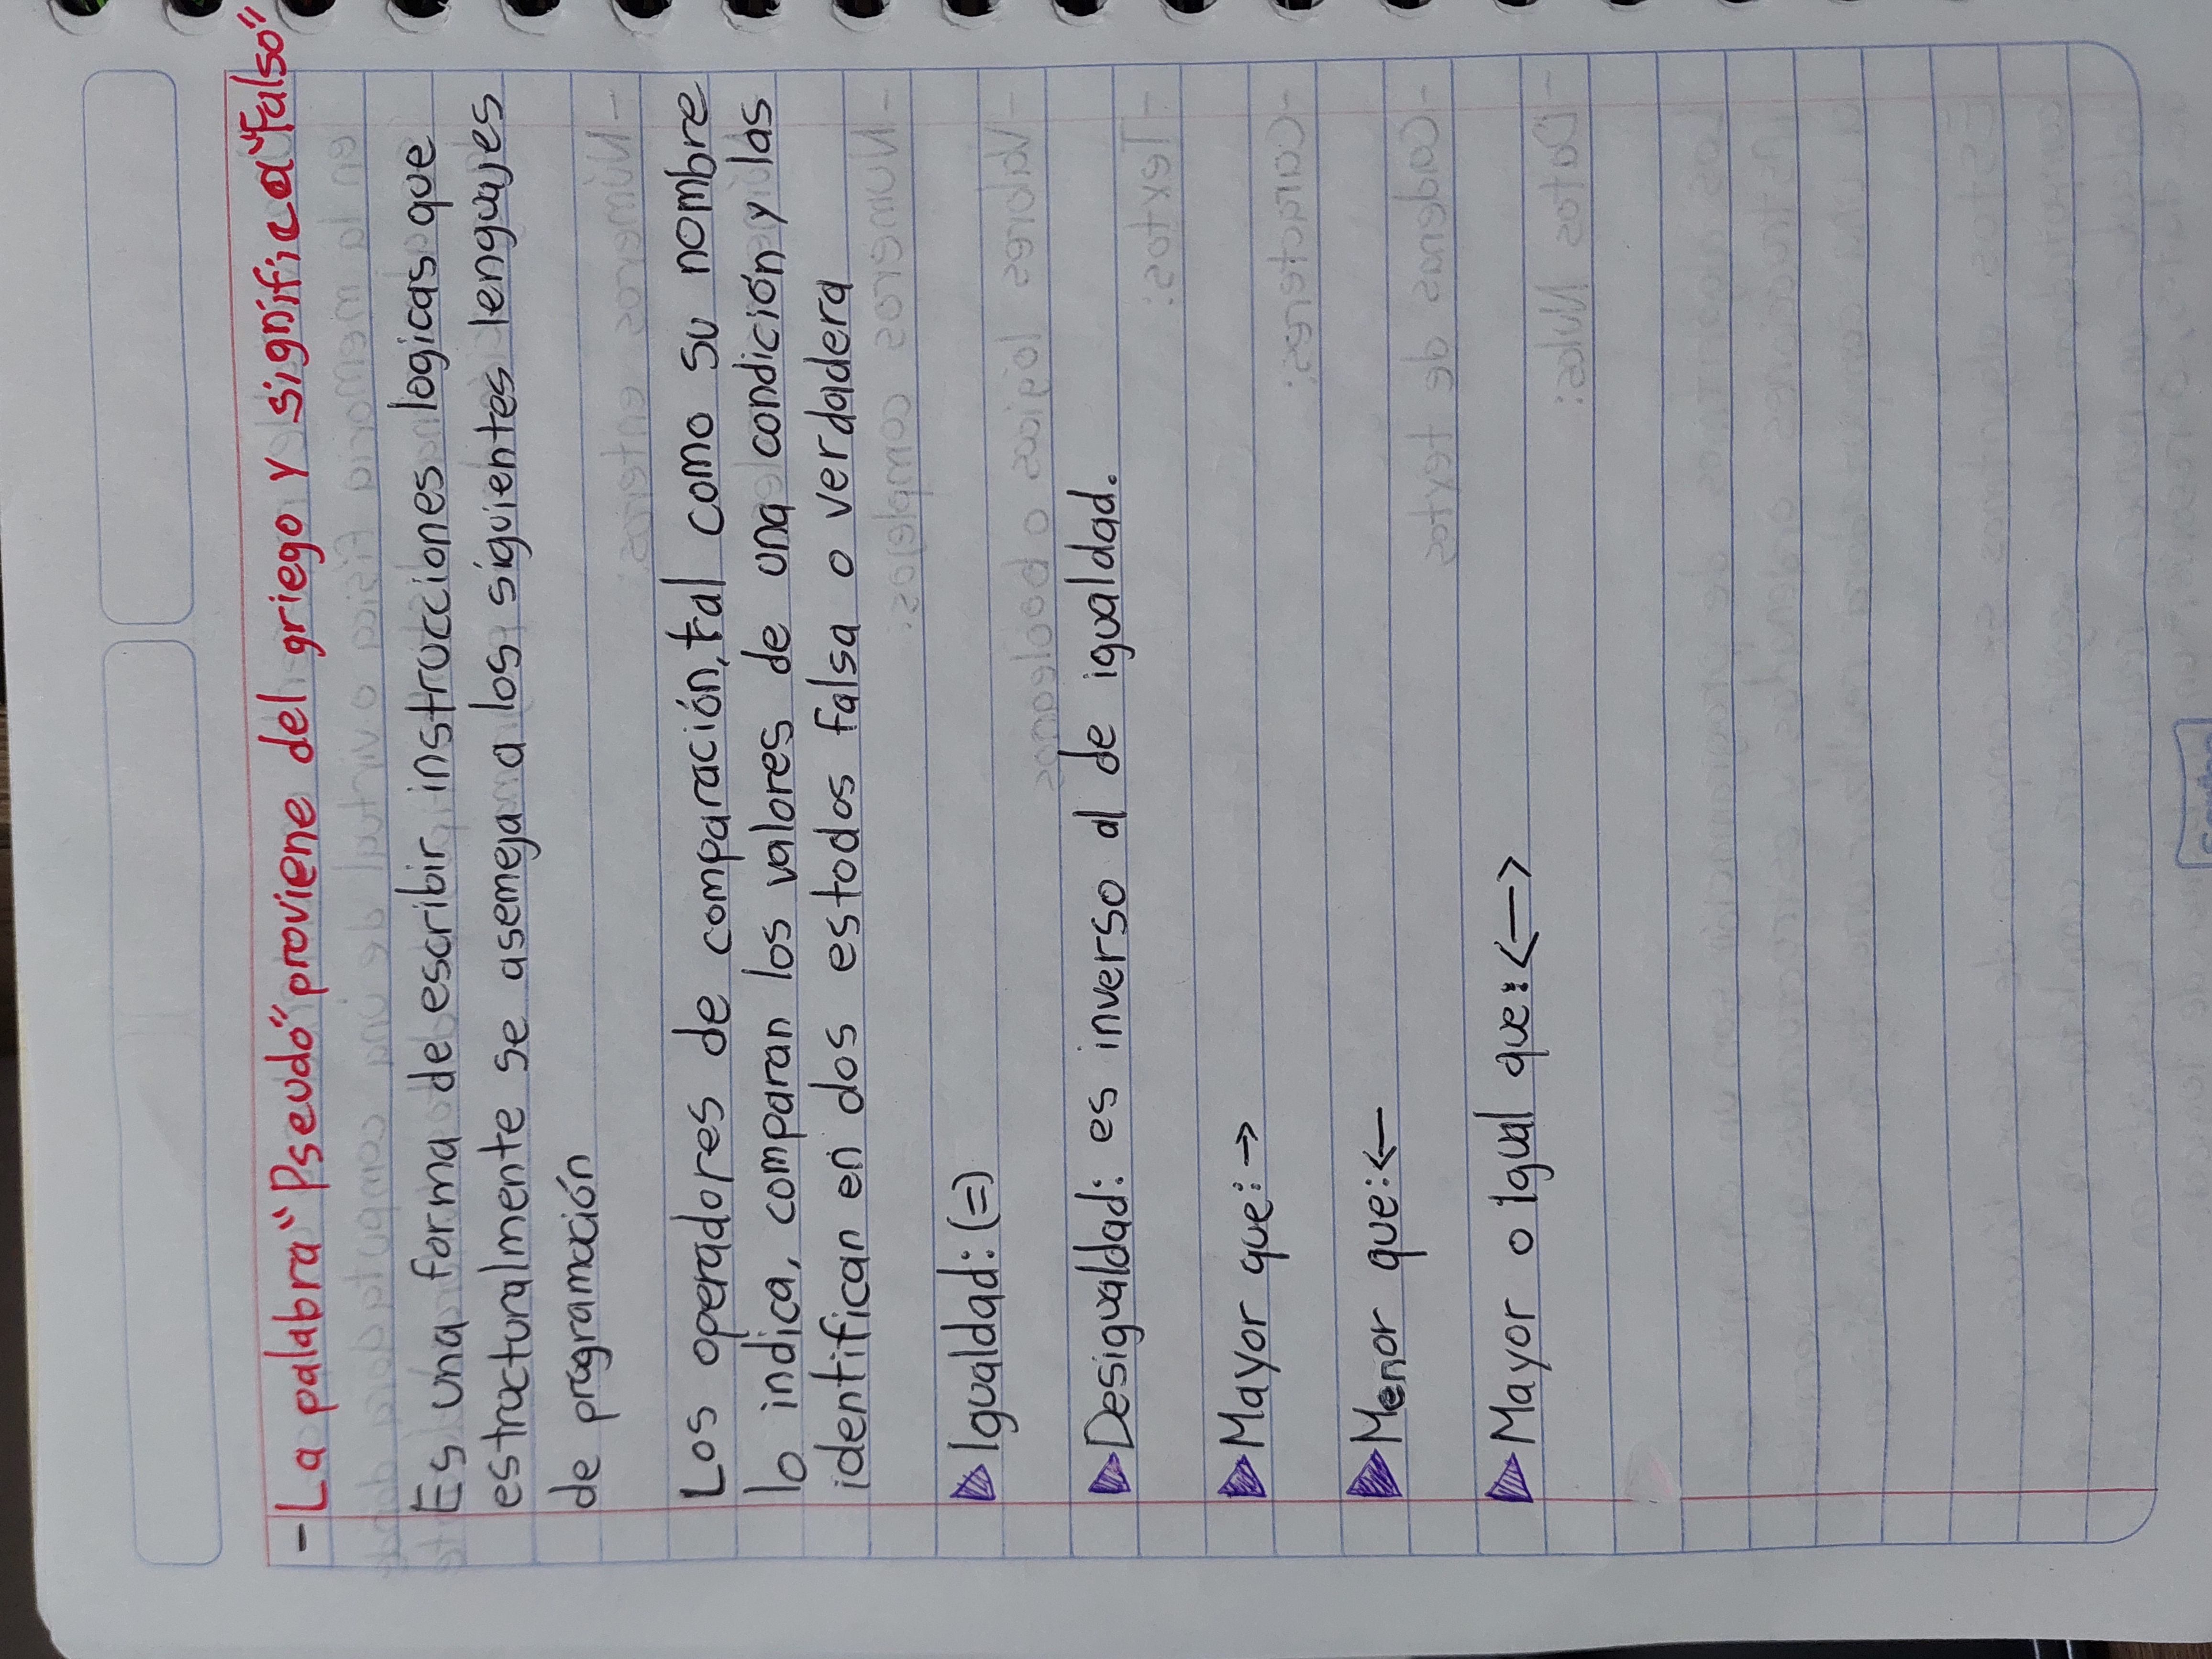 - La palabra "Pseudo" proviene del griego y significa "Falso"
Es una forma de escribir instrucciones logicas que
estructuralmente se asemeja a los siguientes lenguajes
de programación
Los operadores de comparación, tal como su nombre
lo indica, comparan los valores de una condición y las
identifican en dos estodos falsa o verdadera
Igualdad: (=)
Desigualdad: es inverso al de igualdad.
Mayor que: →
Menor que: ←
Mayor o Igual que: <—>